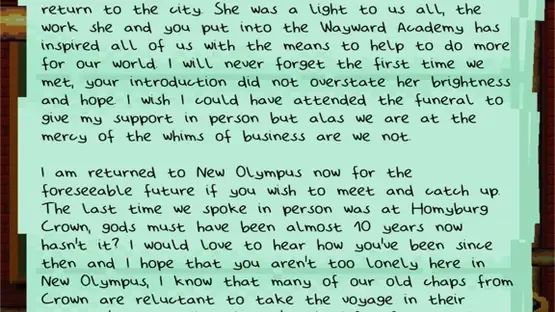 return to the city. She was a light to us all, the
work she and you put into the Wayward Academy has
inspired all of us with the means to help to do more
for our world. I will never forget the first time we
met, your introduction did not overstate her brightness
and hope. I wish I could have attended the funeral to
give my support in person but alas we are at the
mercy of the whims of business are we not.
I am returned to New Olympus now for the
foreseeable future if you wish to meet and catch up.
The last time we spoke in person was at Homyburg
Crown, gods must have been almost 10 years now
hasn't it? I would love to hear how you've been since
then and I hope that you aren't too lonely here in
New Olympus, I know that many of our old chaps from
Crown are reluctant to take the voyage in their